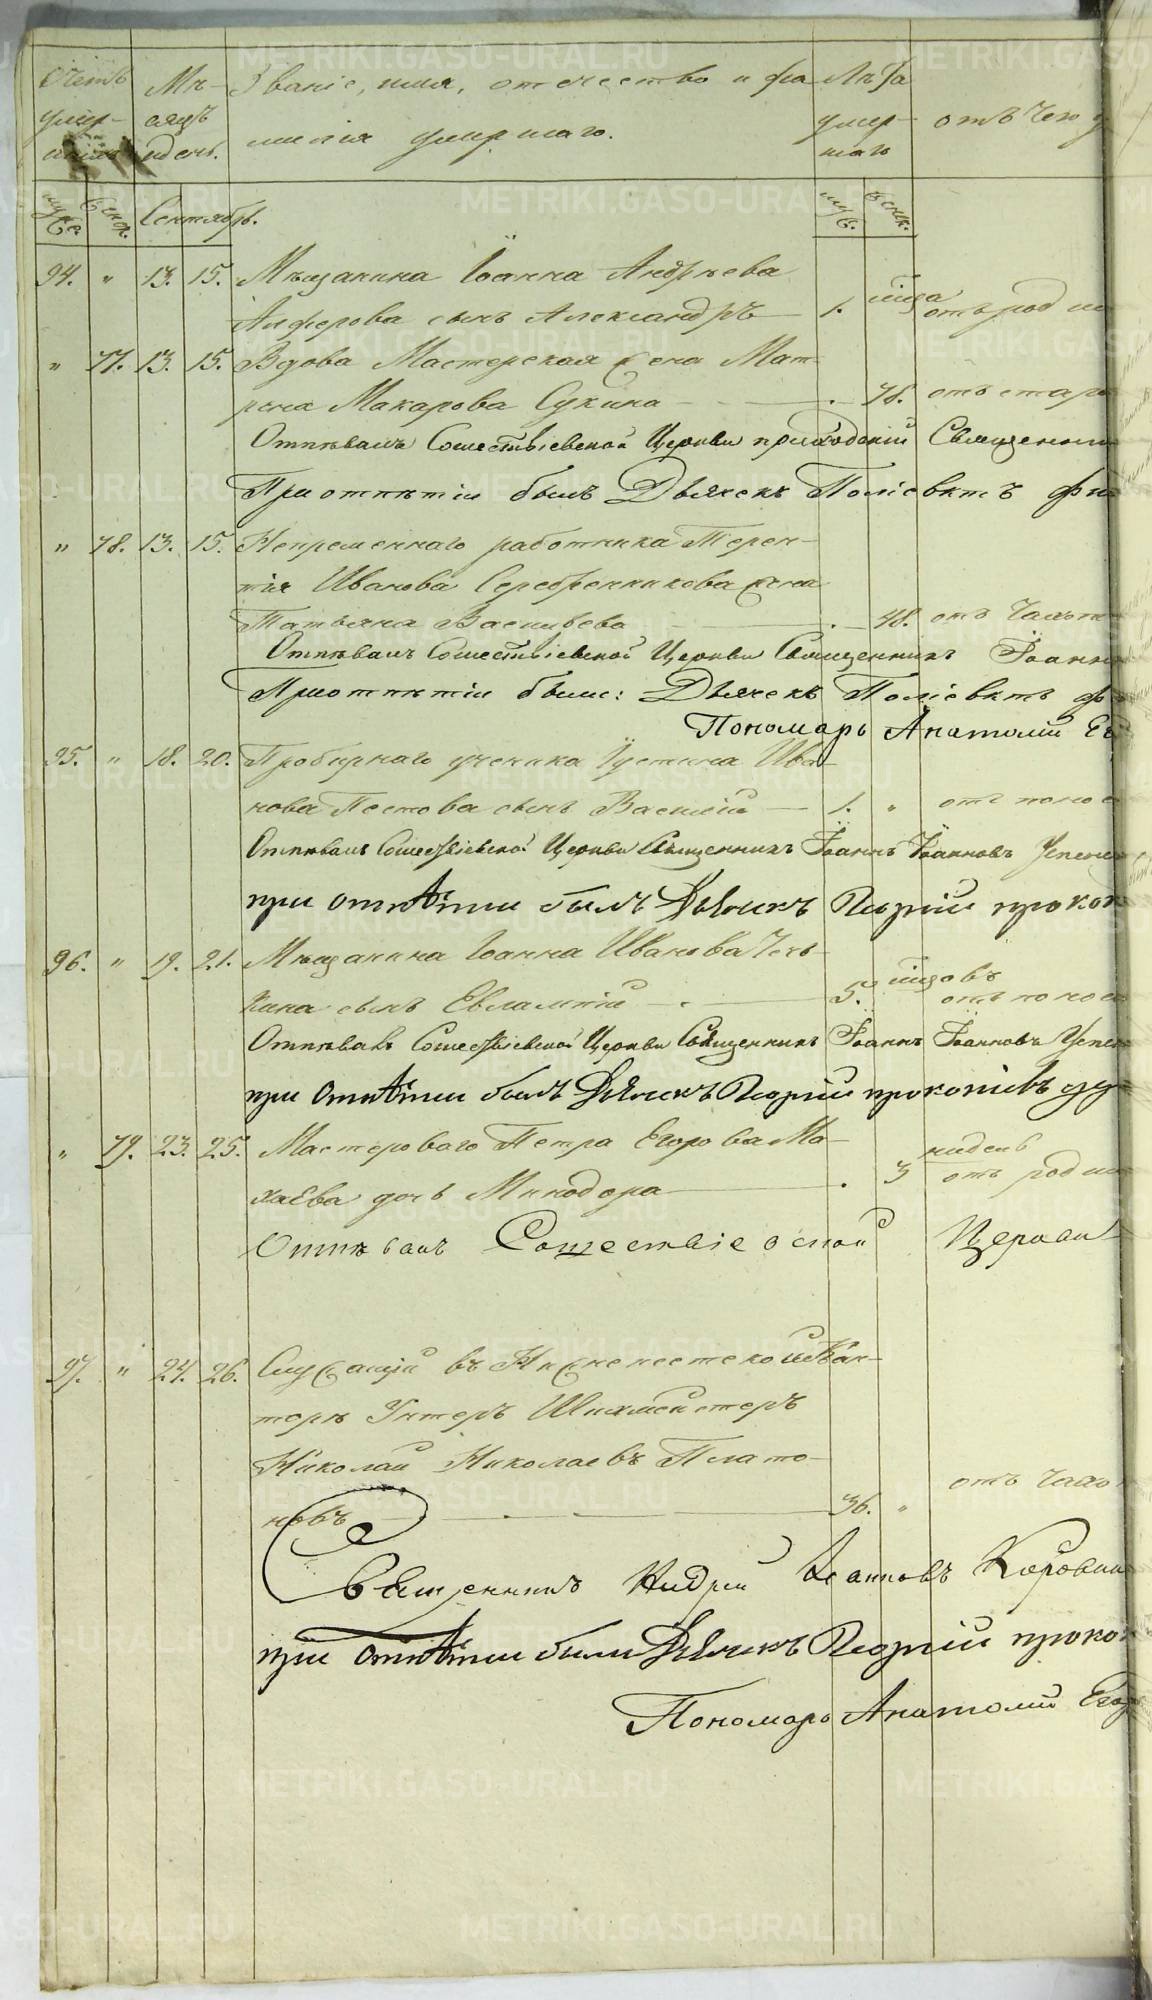 Счетъ Мѣ- Званіе, имя, отчество и фа Лѣта
умер- сяцъ умер- отъ чего у
шихъ и день. милія умершаго. шаго
муже. женс. Сентябрь. муж. женс.
94. " 13. 15. Мѣщанина Іоанна Андрѣева
Алферова сынъ Александръ 1. отъ роди
" 77. 13. 15. Вдова Мастерская жена Мат-
рена Макарова Сукина 78. отъ старо
Отпѣвалъ Сошествіевской Церкви приходскій Священни
При отпѣтіи былъ Дьячекъ Поліевктъ фи
" 78. 13. 15. Непременнаго работника Терен-
тія Иванова Серебренникова жена
Татьяна Васильева 48. отъ Чахот
Отпѣвалъ Сошествіевской Церкви Священникъ Іоанн
При отпѣтіи были: Дьячекъ Поліевктъ ф
Пономарь Анатолій Ег
95. " 18. 20. Пробирнаго ученика Іустина Ива-
нова Пестова сынъ Василій 1. " отъ поноса
Отпѣвалъ Сошествіевской Церкви Священникъ Іоаннъ Іоанновъ Успенс
при отпѣтіи былъ Дьячикъ Георгій прокоп
96. " 19. 21. Мѣщанина Іоанна Иванова
сынъ Евлампій 5. отъ поноса
Отпѣвалъ Сошествіевской Церкви Священникъ Іоаннъ Іоанновъ Успен
при отпѣтіи былъ Дьячикъ Георгій прокопіевъ
" 79. 23. 25. Мастероваго Петра Егорова Ма-
хаева дочь Минодора 3 недель отъ роди
Отпѣвалъ Сошествіевской Церкви
97. " 24. 26. Служащій въ Нижнеисетской Кон-
торѣ Унтеръ Шихмейстеръ
Николай Николаевъ Плато-
новъ 36. " отъ Чахо
Священникъ Андрей Іоанновъ Коровин
при отпѣтіи были Дьячикъ Георгій проко
Пономарь Анатолій Егор
METRIKI.GASO-URAL.RU